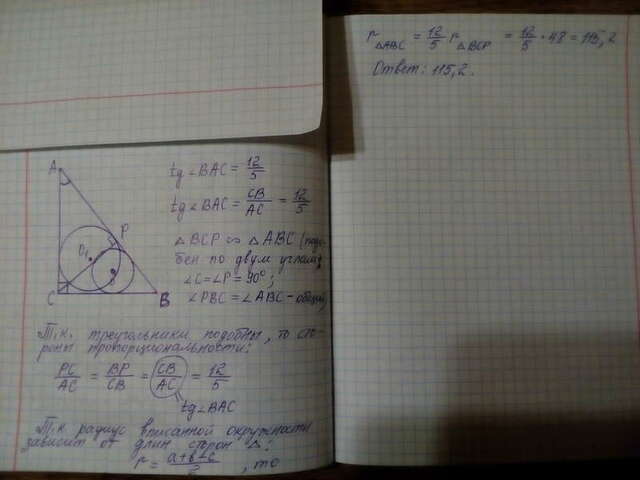 A
P
O₁
C
B
tg∠BAC = 12/5
tg∠BAC = CB/AC = 12/5
△BCP ∽ △ABC (подо-
бен по двум углам,
∠C = ∠P = 90°;
∠PBC = ∠ABC - общий)
Т.к. треугольники подобны, то сто-
роны пропорциональности:
PC/AC = BP/CB = CB/AC = 12/5
tg∠BAC
Т.к радиус вписанной окружности
зависит от длин сторон △:
r = a+b-c/2, то
r△ABC = 12/5 r△BCP = 12/5 · 48 = 115,2
Ответ: 115,2.